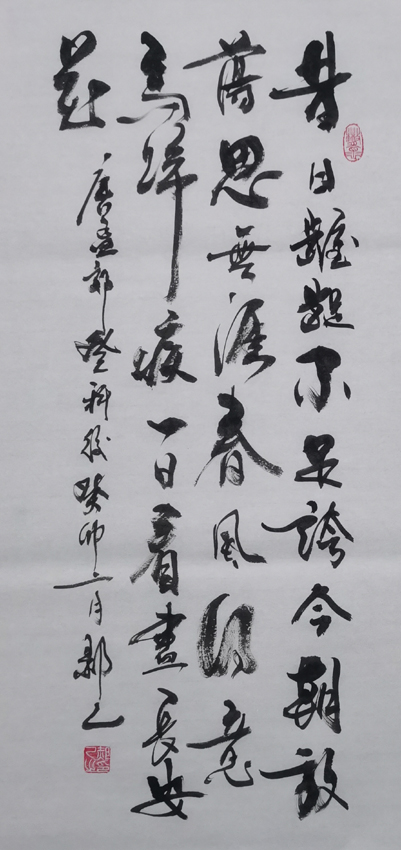 昔日龌龊不足誇今朝放
蕩思無涯春風得意
馬蹄疾一日看盡長安
花 唐孟郊登科後癸卯二月